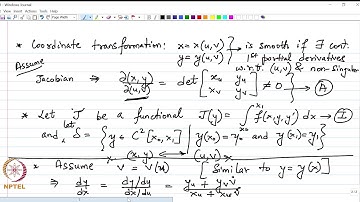 * Coordinate transformation: x = x(u,v) } is smooth if ∃ cont.
y = y(u,v) } 1st partial derivatives
Assume w.r.t. (u,v) & non-singular
Jacobian ⇒ ∂(x,y)/∂(u,v) = det [ x_u y_u
x_v y_v ] ≠ 0 } → (A)
* Let J be a functional J(y) = ∫_{x_0}^{x_1} f(x,y,y') dx → (I)
and let S = { y ∈ C²[x_0, x_1] | y(x_0) = y_0 and y(x_1) = y_1 }
(x,y) ↔ (u,v)
* Assume v = v(u) [Similar to y = y(x)]
⇒ dy/dx = (dy/du)/(dx/du) = (y_u + y_v v̇)/(x_u + x_v v̇)
NPTEL